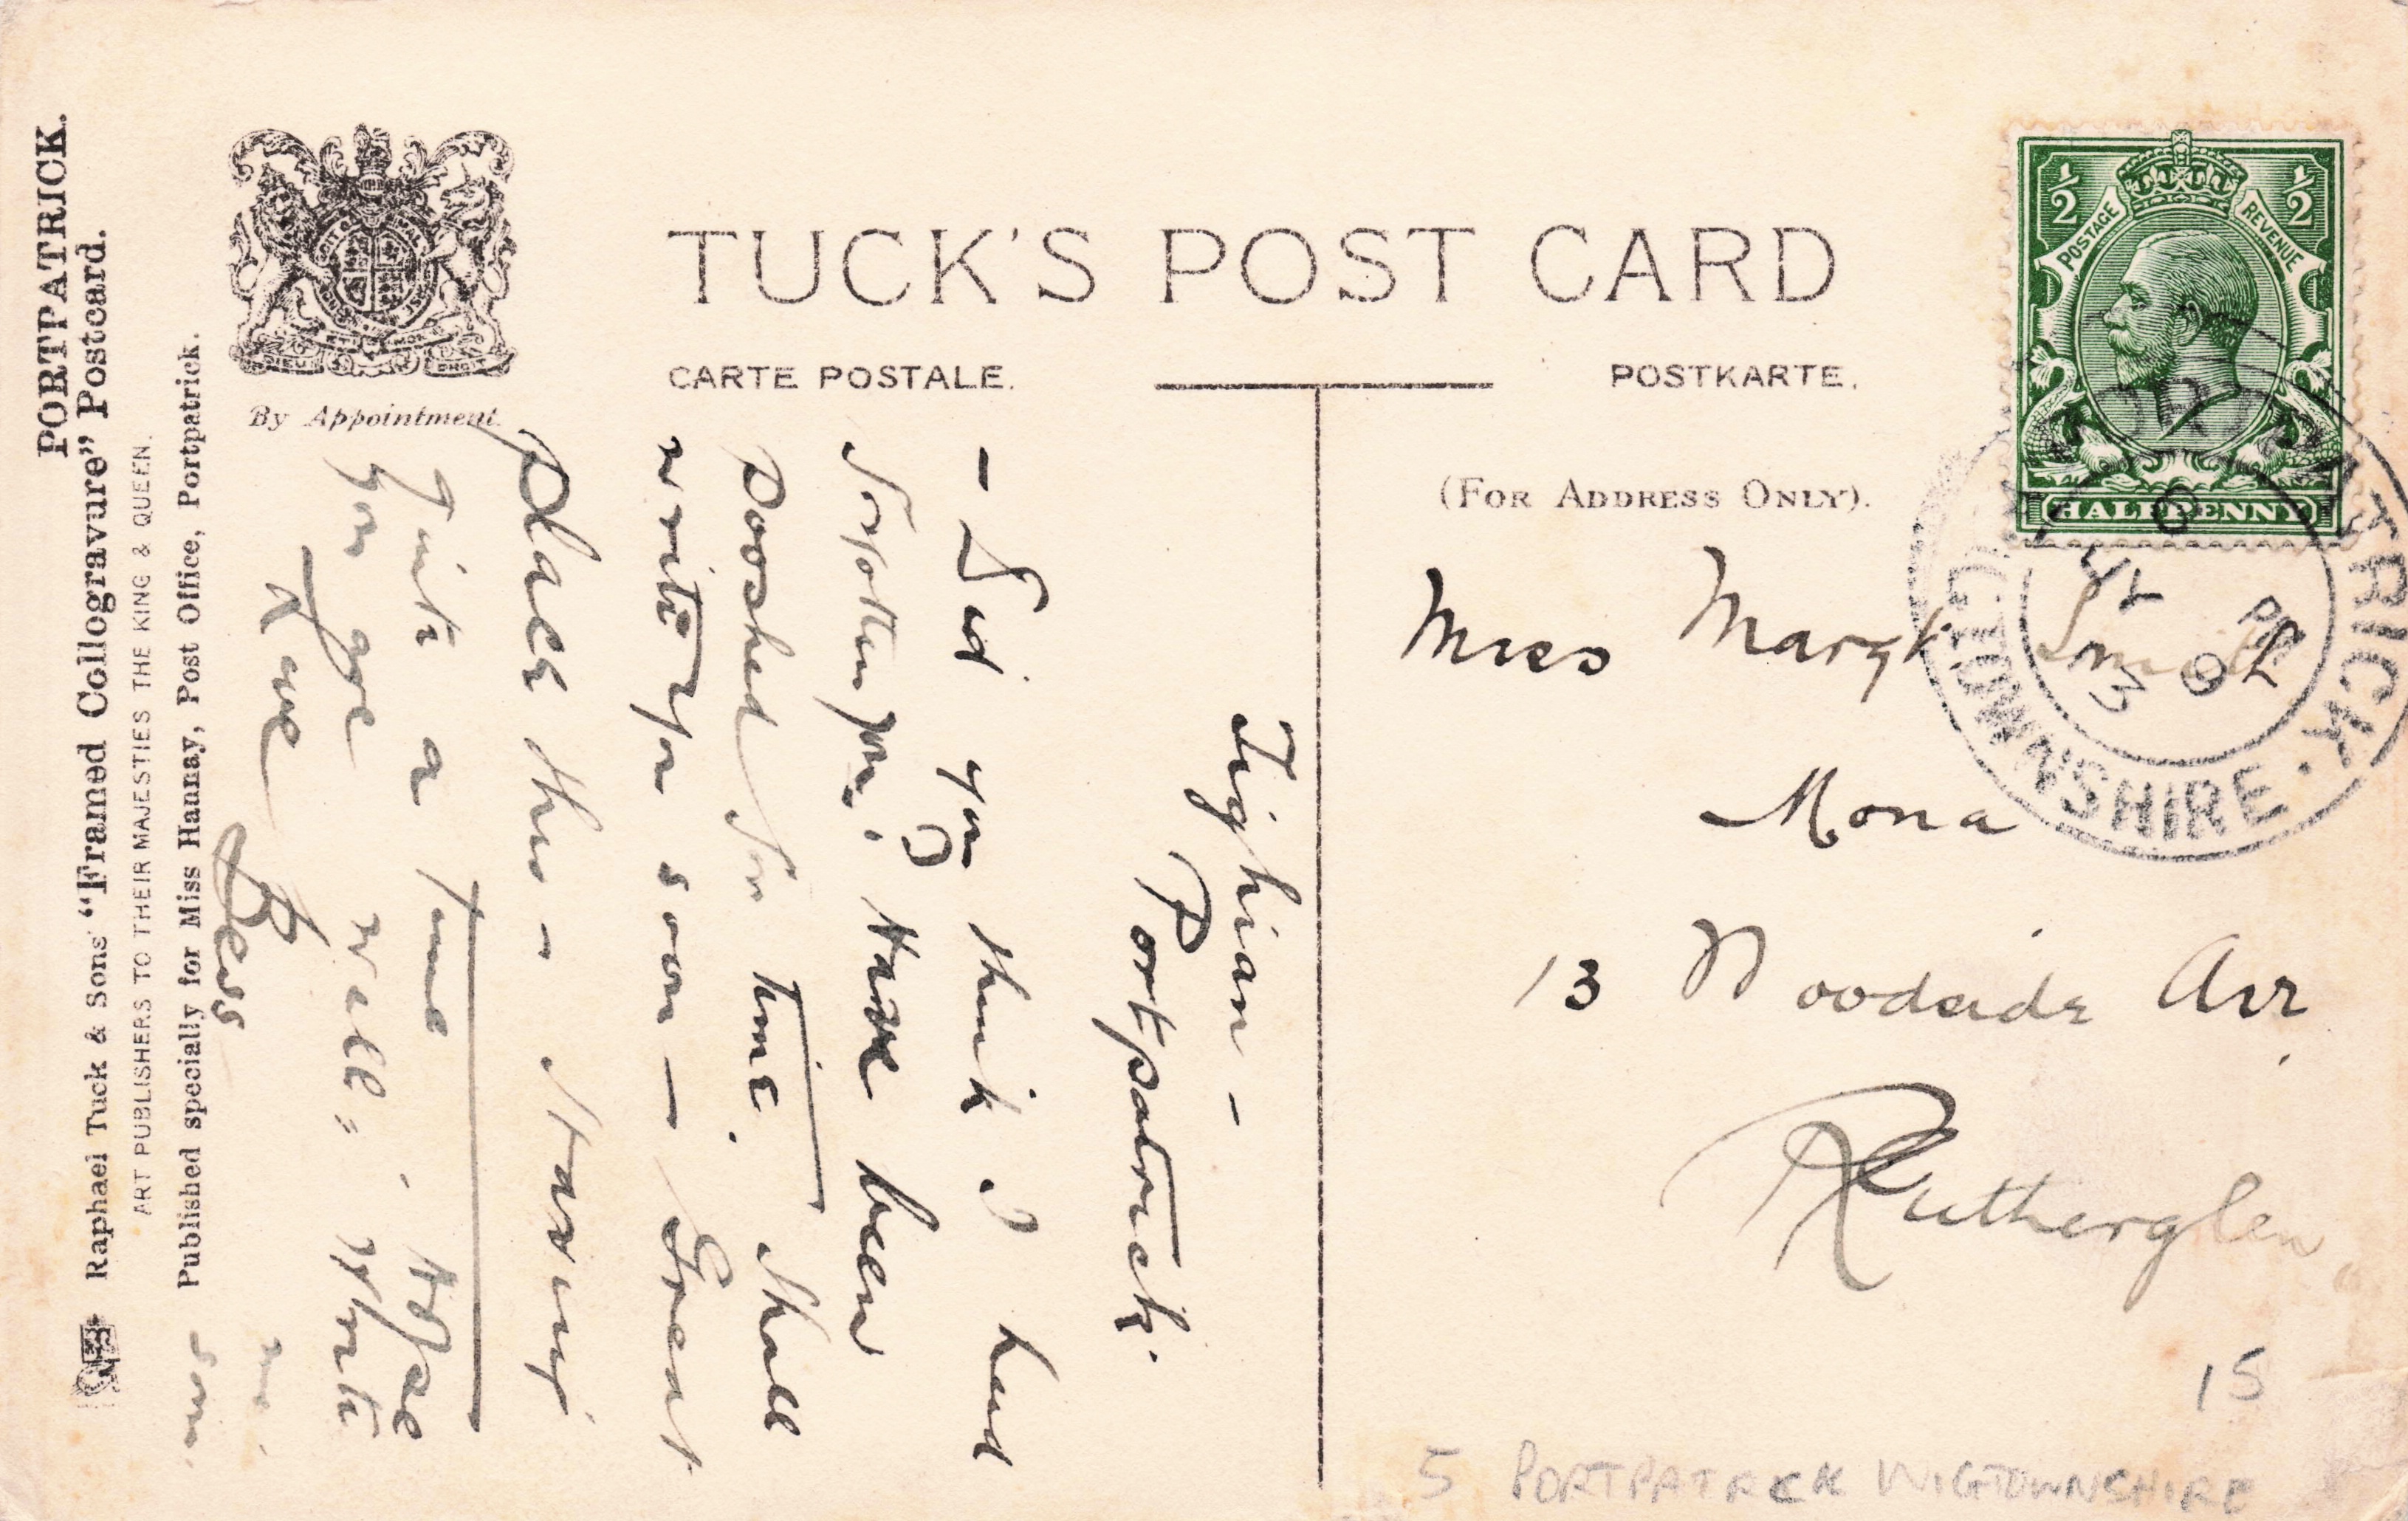 PORTPATRICK.
Raphael Tuck & Sons' "Framed Collogravure" Postcard.
ART PUBLISHERS TO THEIR MAJESTIES THE KING & QUEEN.
Published specially for Miss Hannay, Post Office, Portpatrick.
By Appointment.
TUCK'S POST CARD
CARTE POSTALE.
POSTKARTE.
(FOR ADDRESS ONLY).
½ ½
POSTAGE REVENUE
HALFPENNY
PORTPATRICK.
WIGTOWNSHIRE
8 PM
JY 8
13
Tighian -
Portpatrick.
- Did you think I had
forgotten you? Have been
pooshed for time. Shall
write you soon - Great
place this - Having
quite a time. Hope
you are well. Write
me
soon.
Love
Bess
Miss Smith
Mona
13 Woodside Ave,
Rutherglen
15
5 PORTPATRICK WIGTOWNSHIRE